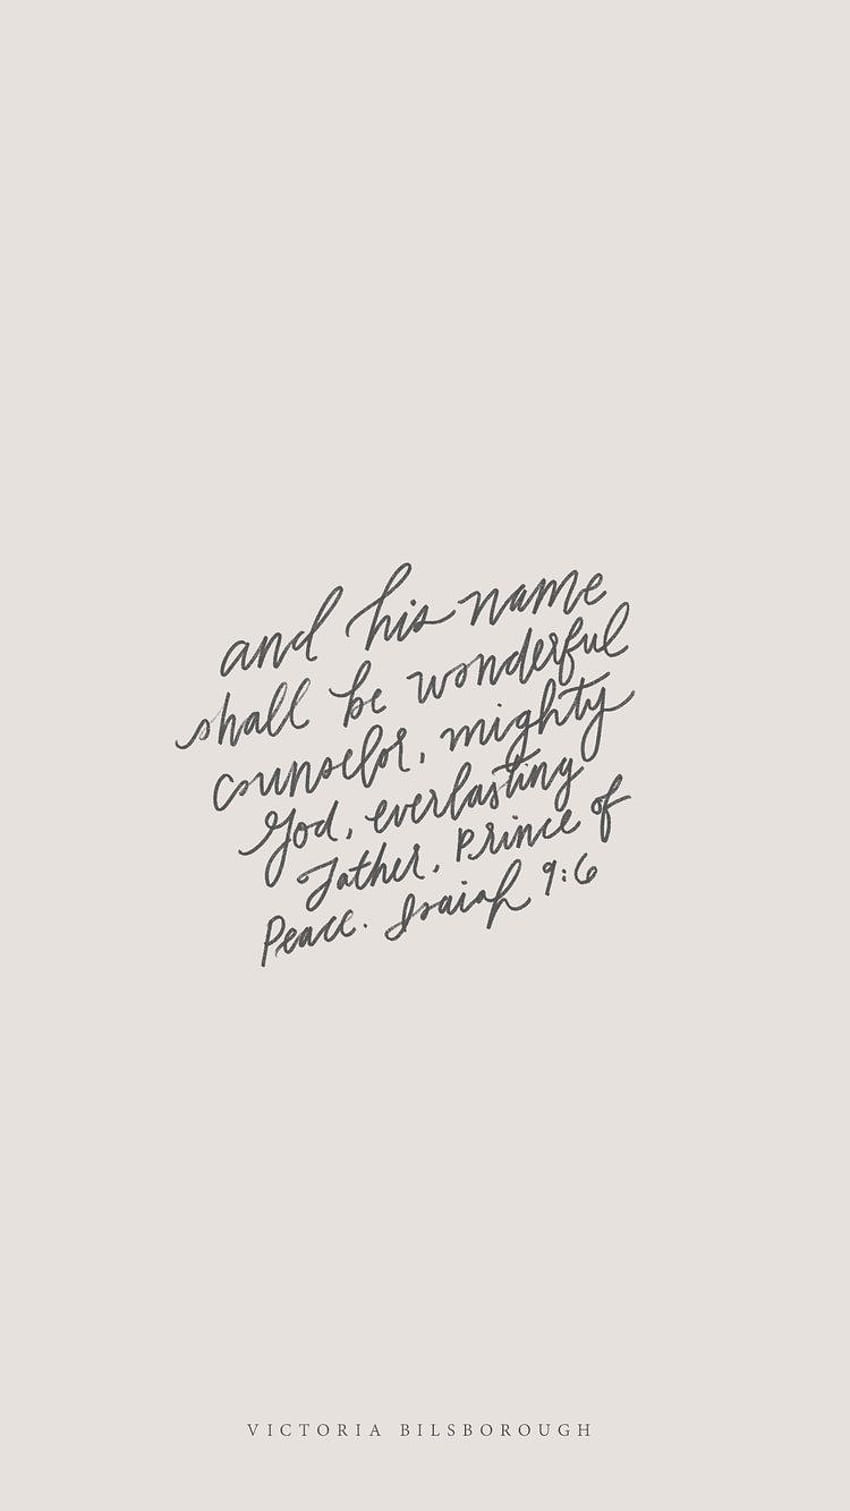 and his name
shall be wonderful
counselor, mighty
God, everlasting
Father, Prince of
Peace. Isaiah 9:6
VICTORIA BILSBOROUGH